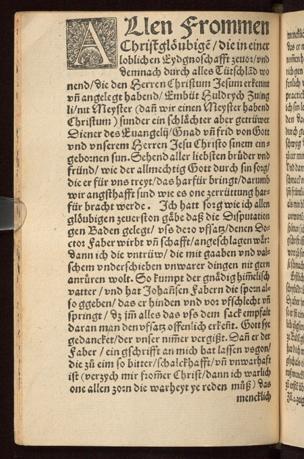 Allen Frommen
Christglöubigē / die in einer
loblichen Eydgnoschafft zeuor / vnd
demnach durch alles Tütschlād wo
nend / die den Herren Christum Jesum erkennt
vñ angelegt habend / Enbüt Huldrych Zuing
li / nit Meyster (dañ wir einen Meyster habend
Christum) sunder ein schlächter aber getrüwer
Diener des Euangelij / Gnad vñ frid von Gott
vnd vnserem Herren Jesu Christo sinem ein⸗
gebornen sun. Sehend aller liebsten brüder vnd
fründ / wie der allmechtig Gott durch sin sorg /
die er für vns treyt / das harfür bringt / darumb
wir angsthafft sind wie es one zerrüttung har⸗
für bracht werde. Ich hatt sorg wie ich allen
glöubigen zeuerston gäbe daß die Disputation
gen Baden gelegt / vss dero vfsatz / denen Do⸗
ctor Faber wirbt vñ schafft / angeschlagen wär:
dann ich die vntrüw / die mit gaaben vnd val⸗
schem vnderschieben vnwarer dingen nit gern
anrüren wolt. So kumpt der gnädig himelisch
vatter / vnd hat Johansen Fabern die sporn al⸗
so ggeben / das er hinden vnd vor vfschlecht vñ
springt / dz jm alles das vss dem sack empfalt
daran man den vfsatz offenlich erkent. Gott sye
gedancket / der vnser nimer vergißt. Dañ er der
Faber / ein gschrifft an mich hat lassen vsgon /
die zů eim so bitter / schalckhafft / vñ vnwarhafft
ist (verzych mir fromer Christ / dann ich warlich
one allen zorn die warheyt ye reden můß) das
mencklich